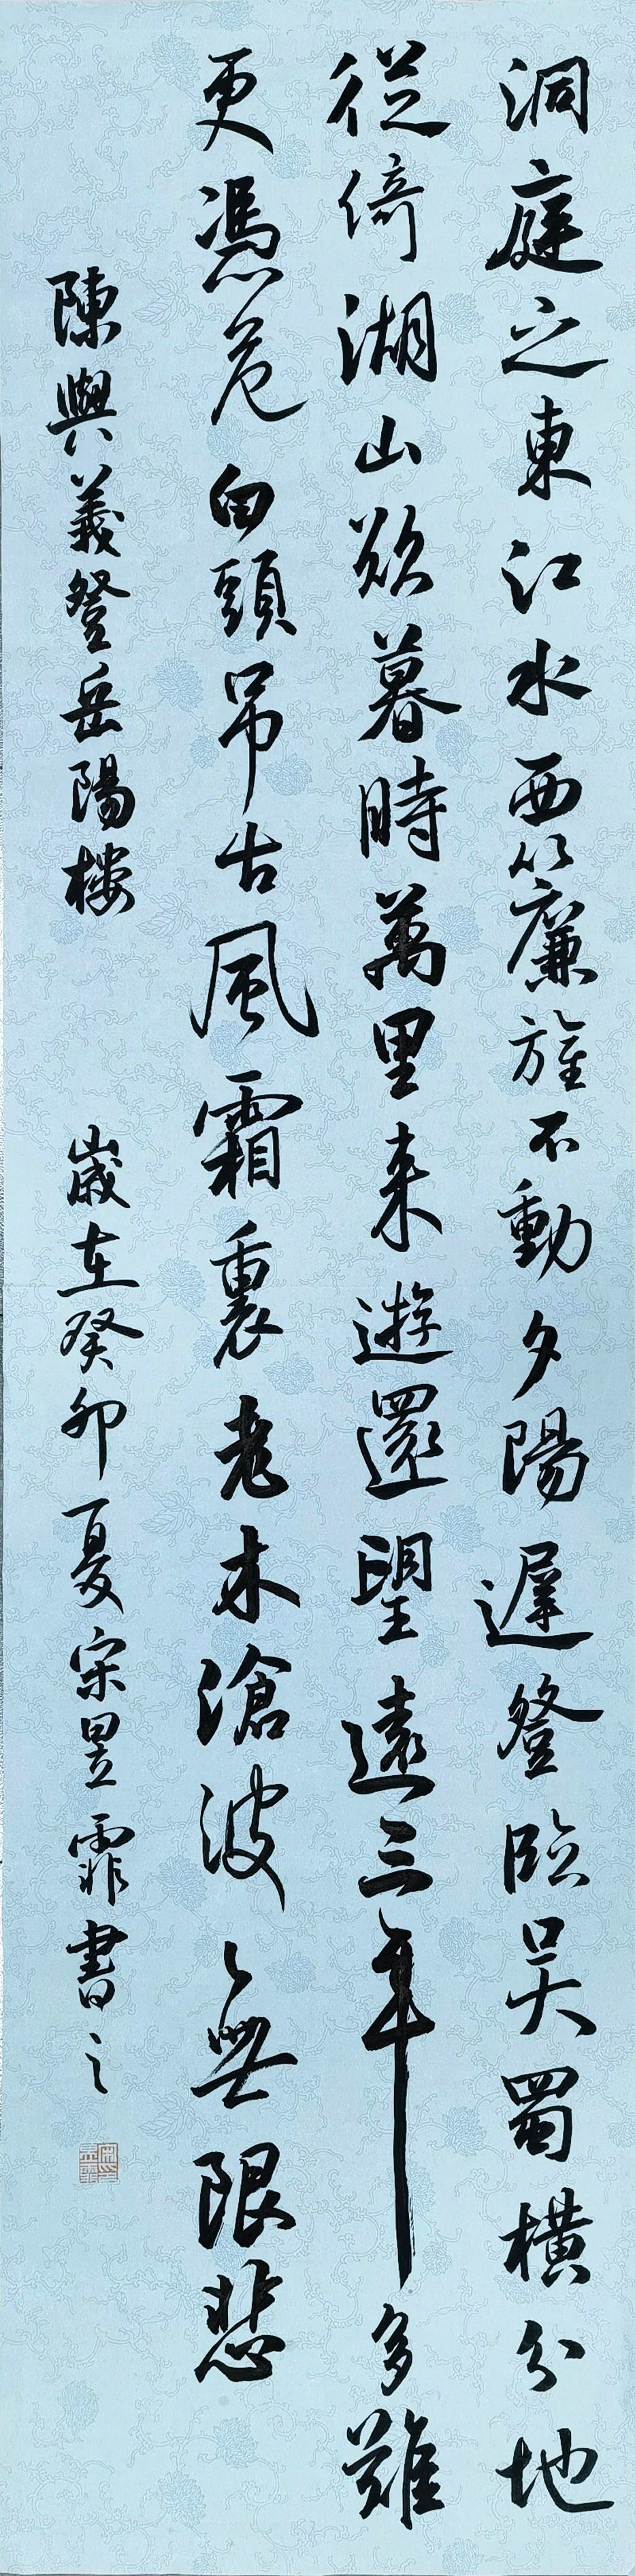 洞庭之東江水西簾旌不動夕陽遲登臨吳蜀橫分地
徙倚湖山欲暮時萬里来遊還望遠三年多難
更憑危白頭吊古風霜裏老木滄波無限悲
陳與義登岳陽樓 歲在癸卯夏宋昱霏書之